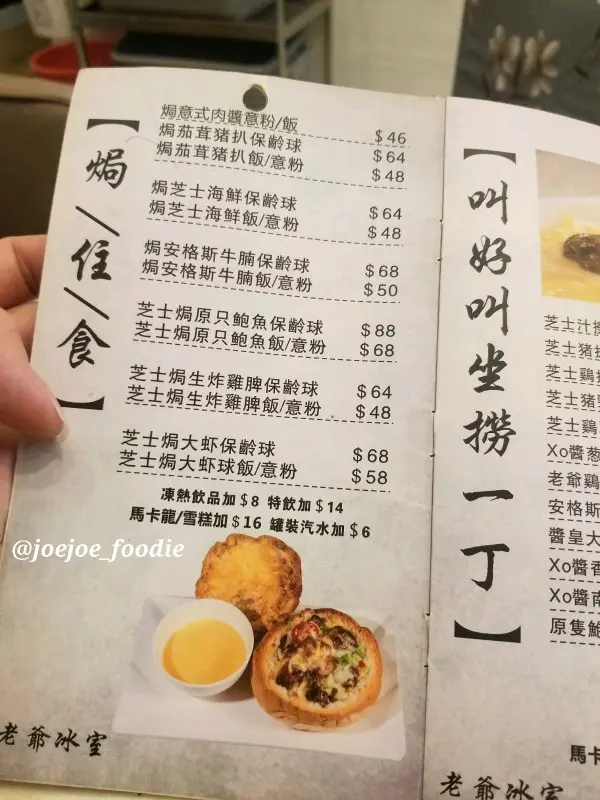 【焗/住/食】
焗意式肉醬意粉/飯 $46
焗茄茸豬扒保齡球 $64
焗茄茸豬扒飯/意粉 $48
焗芝士海鮮保齡球 $64
焗芝士海鮮飯/意粉 $48
焗安格斯牛腩保齡球 $68
焗安格斯牛腩飯/意粉 $50
芝士焗原只鮑魚保齡球 $88
芝士焗原只鮑魚飯/意粉 $68
芝士焗生炸雞脾保齡球 $64
芝士焗生炸雞脾飯/意粉 $48
芝士焗大虾保齡球 $68
芝士焗大虾球飯/意粉 $58
凍熱飲品加$8 特飲加$14
馬卡龍/雪糕加$16 罐裝汽水加$6
@joejoe_foodie
老爺冰室
【叫好叫坐撈一丁】
芝士汁撈
芝士豬
芝士鷄
芝士豬
芝士鷄
Xo醬葱
老爺鷄
安格斯
醬皇大
Xo醬香
Xo醬南
原隻鮑
馬卡
老爺冰室